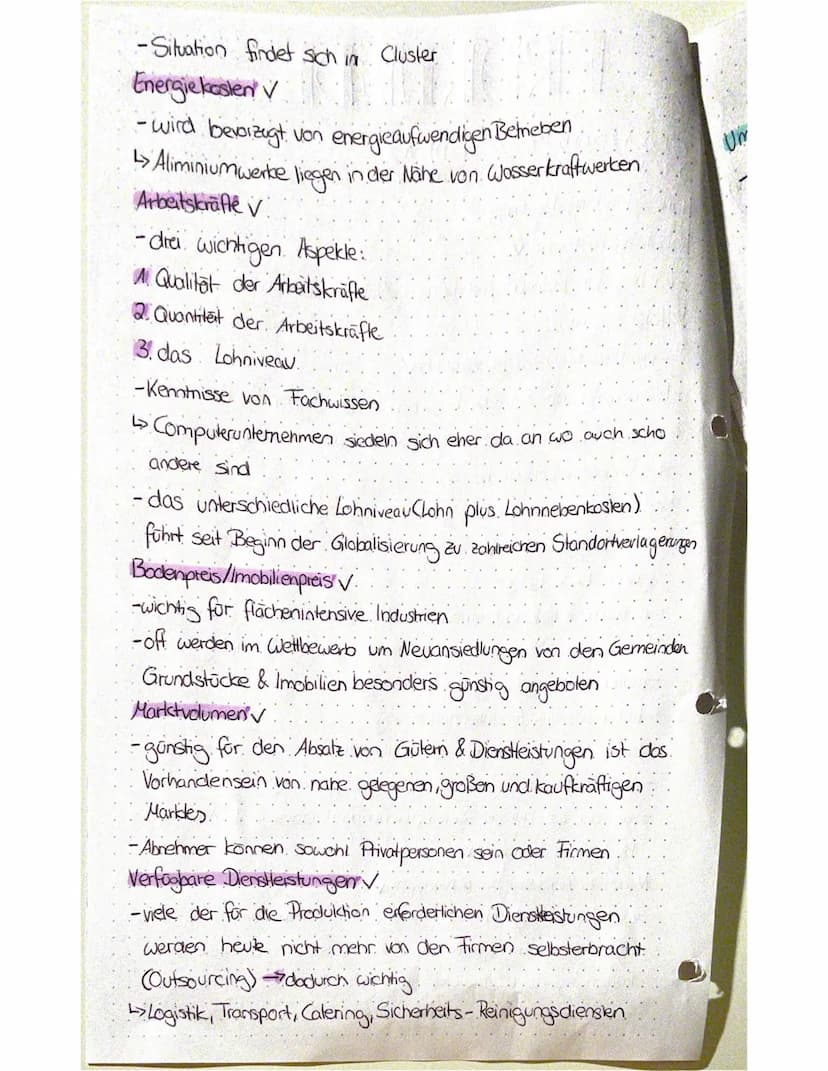 - Situation findet sch in Cluster
Energiekosten ✓
- wird bevorzugt von energieaufwendigen Betrieben
↳ Aliminiumwerke liegen in der Nähe von Wasserkraftwerken
Arbeitskräfte ✓
- drei wichtigen Aspekte:
1. Qualität der Arbeitskräfte
2. Quantität der Arbeitskräfte
3. das Lohniveau
- Kenntnisse von Fachwissen
↳ Computerunternehmen siedeln sich eher da an wo auch scho
andere sind
- das unterschiedliche Lohniveau (Lohn plus Lohnnebenkosten)
führt seit Beginn der Globalisierung zu zahlreichen Standortverlagerungen
Bodenpreis/Imobilienpreis ✓
- wichtig für flächenintensive Industrien
- oft werden im Wettbewerb um Neuansiedlungen von den Gemeinden
Grundstücke & Imobilien besonders günstig angeboten
Marktvolumen ✓
- günstig für den Absatz von Gütern & Dienstleistungen ist das
Vorhandensein von nahe gelegenen, großen und kaufkräftigen
Marktes
- Abnehmer können sowohl Privatpersonen sein oder Firmen
Verfügbare Dienstleistungen ✓
- viele der für die Produktion erforderlichen Dienstleistungen
werden heute nicht mehr von den Firmen selbsterbracht
(Outsourcing) → dadurch wichtig
↳ Logistik, Transport, Catering, Sicherheits- Reinigungsdiensten
Um